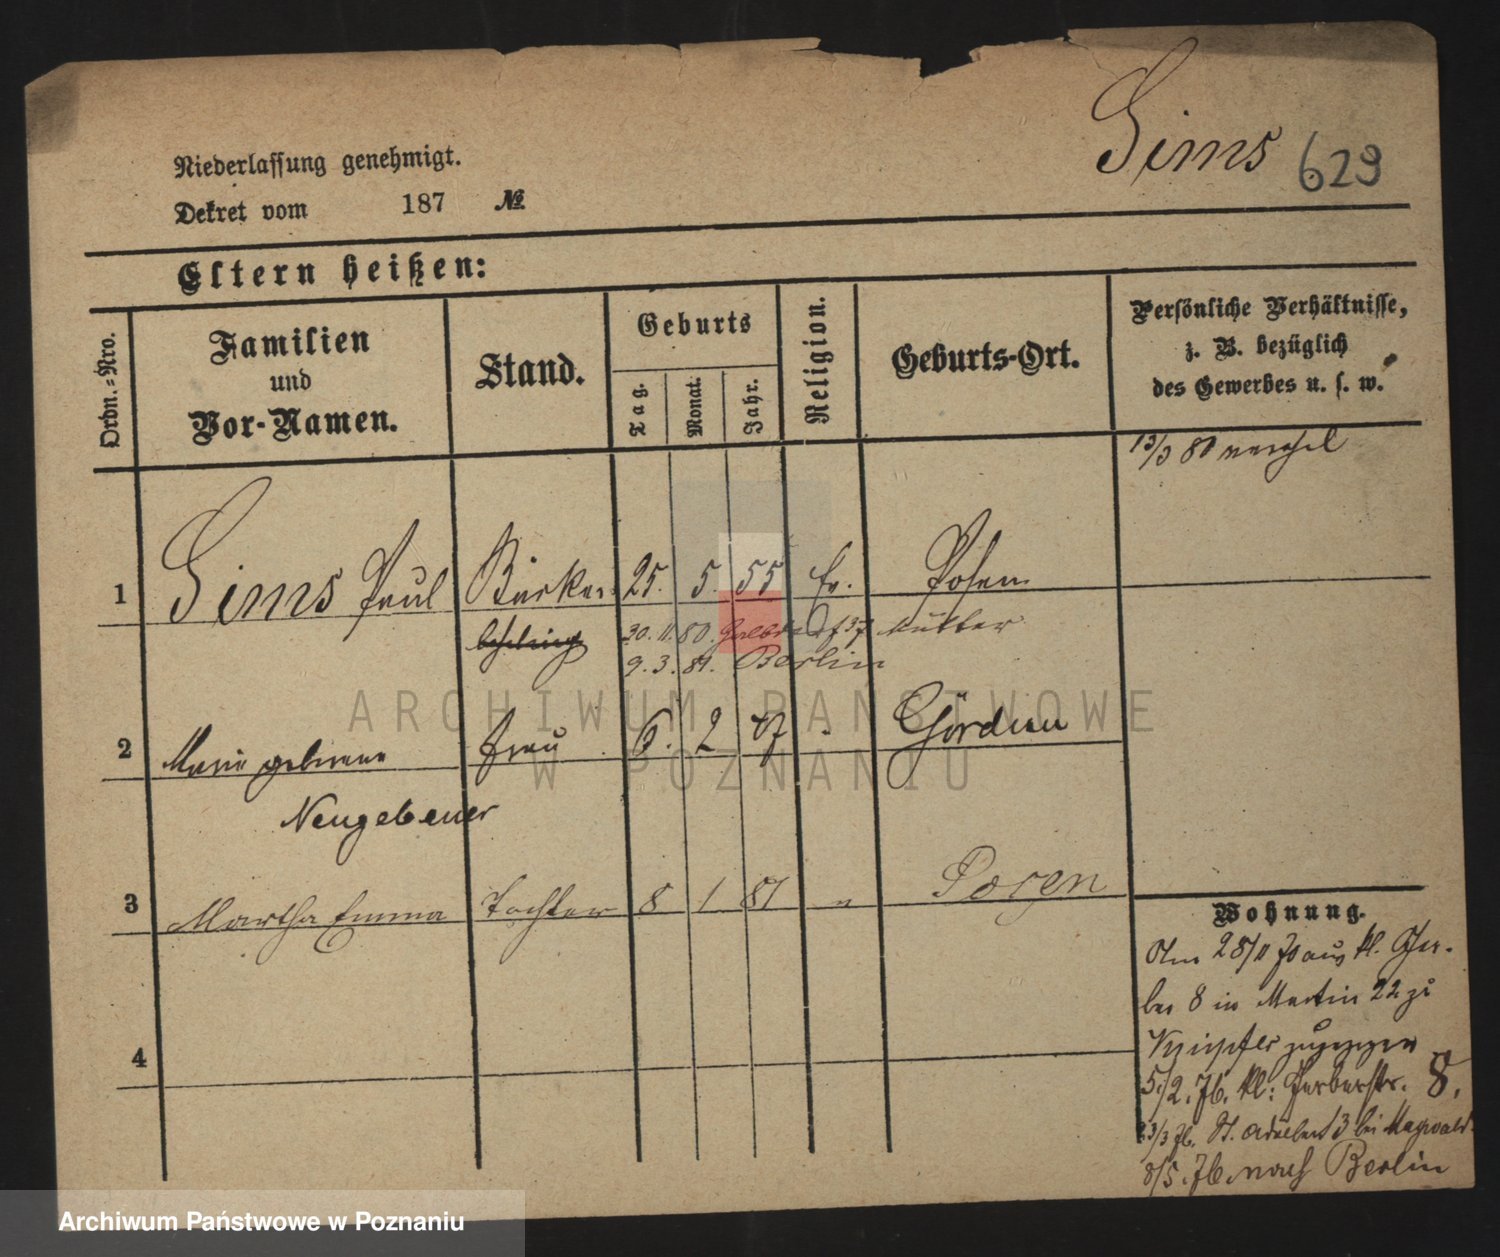 Sims 629
Niederlassung genehmigt.
Dekret vom 187 №
Eltern heißen:
Ordn.=Nro.
Familien
und
Vor-Namen.
Stand.
Geburts
Tag.
Monat.
Jahr.
Religion.
Geburts-Ort.
Persönliche Verhältnisse,
z. B. bezüglich
des Gewerbes u. s. w.
13/3 80
1 Sims Paul 25. 5. 55 Posen
30. 11. 80. Mutter
9. 3. 81. Berlin
ARCHIWUM PAŃSTWOWE
W POZNANIU
2 Marie geborene Frau 6. 2 57 "
Neugebauer
3 Martha Emma Tochter 8 1 81 " Posen
4
Wohnung.
Am 28/11 aus kl. Ger-
ber 8 in Martin 22 zu
5/2. 76. kl: Gerberstr. 8.
23/3 76. St. Adalbert 3 bei Maywald
8/5. 76 nach Berlin
Archiwum Państwowe w Poznaniu